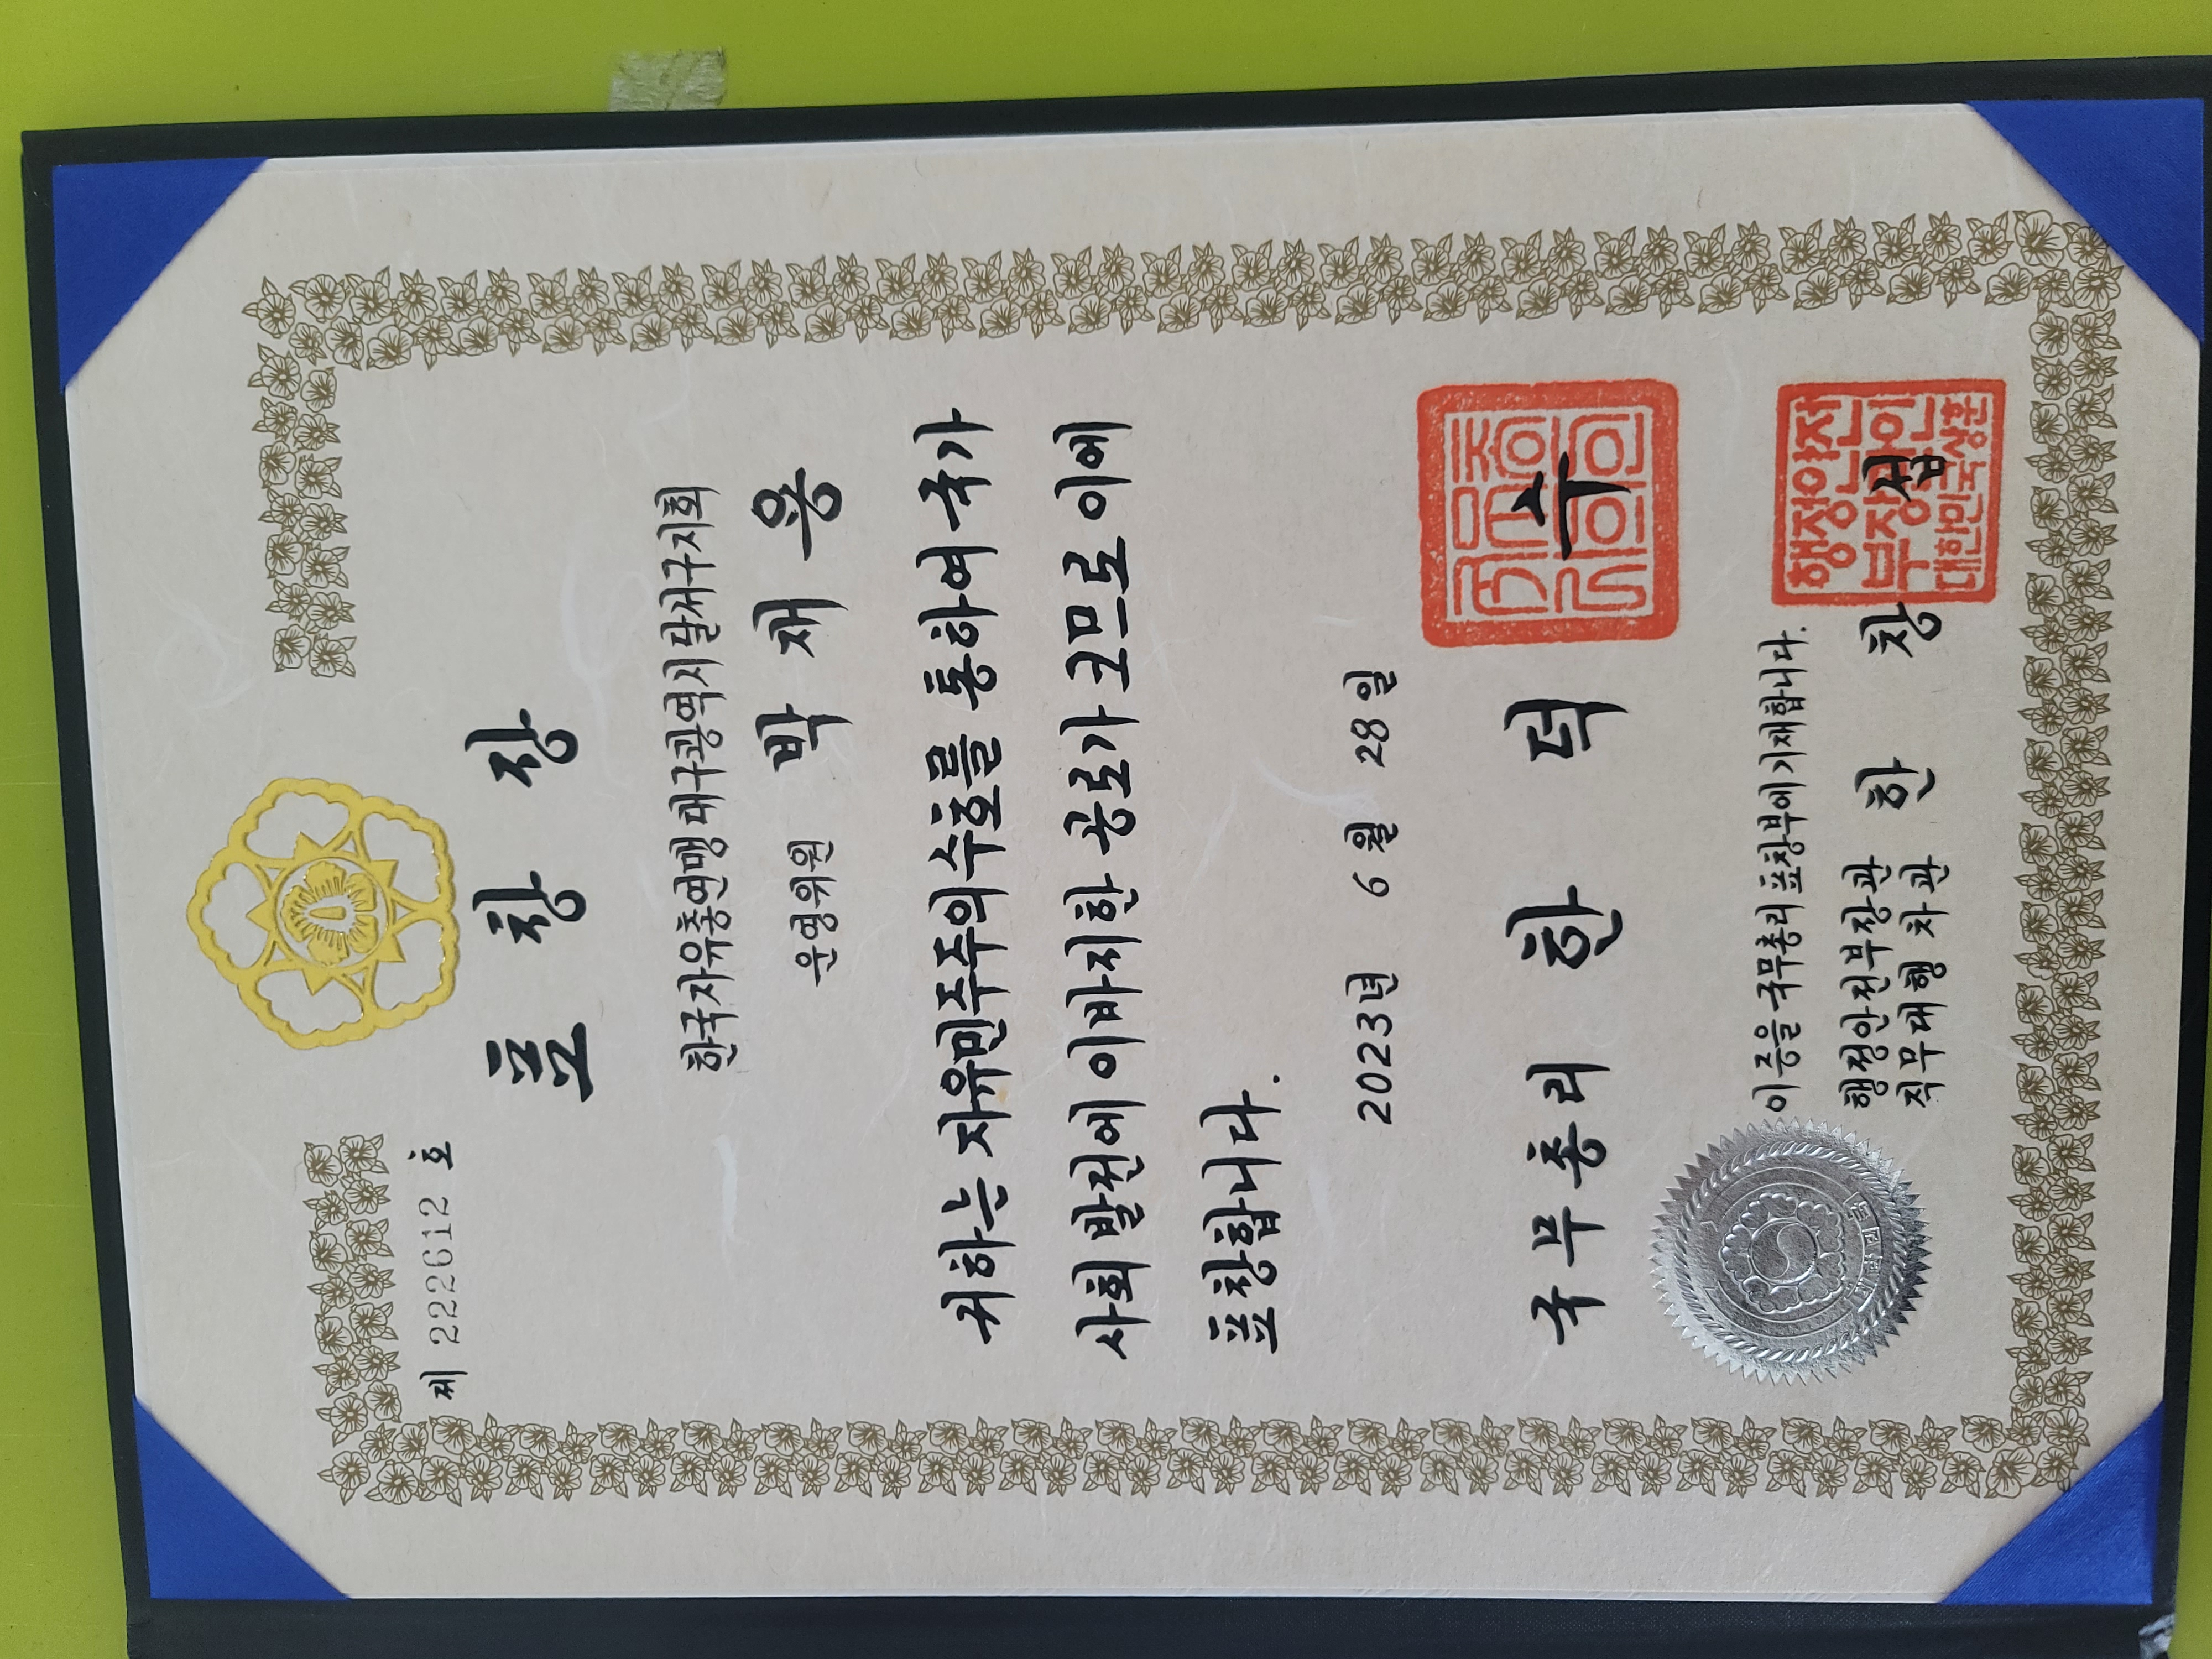 제 222612 호
표 창 장
한국자유총연맹 대구광역시 달서구지회
운영위원 박 재 용
귀하는 자유민주주의 수호를 통하여 국가
사회 발전에 이바지한 공로가 크므로 이에
표창합니다.
2023년 6월 28일
국무총리 한 덕 수
이 증을 국무총리 표창부에 기재합니다.
행정안전부장관
직무대행 차관 한 창 섭
행정안전
부장관인
대한민국